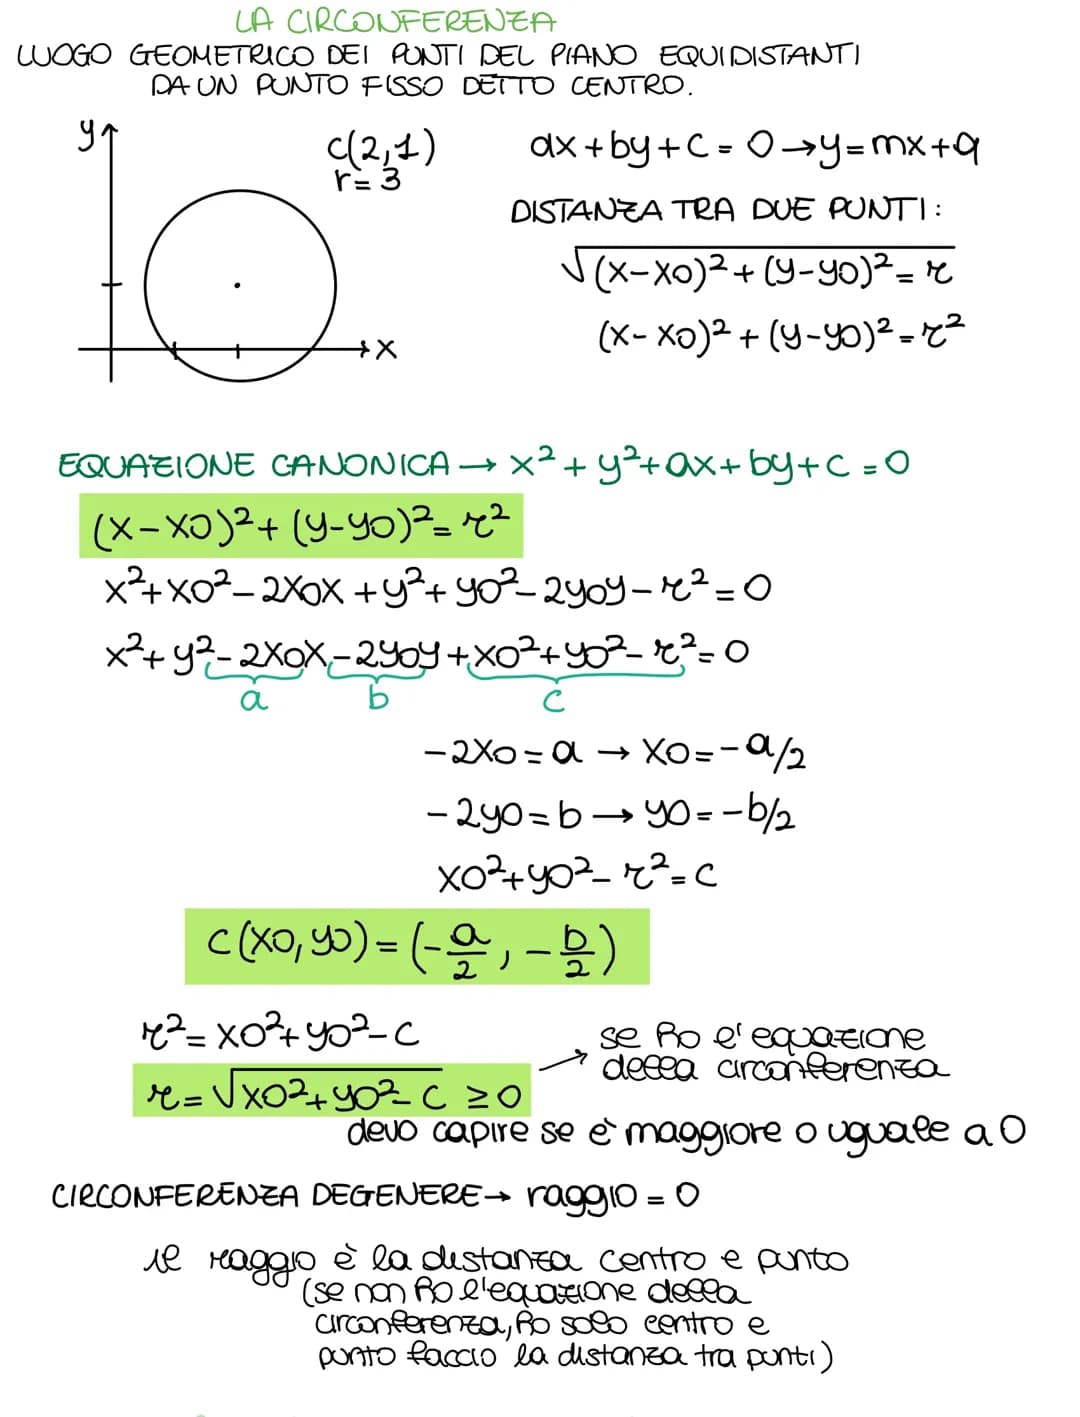 LA CIRCONFERENZA
LUOGO GEOMETRICO DEI PUNTI DEL PIANO EQUIDISTANTI
DA UN PUNTO FISSO DETTO CENTRO.
y
C(2,1)
r=3
x
ax+by+c=0→y=mx+q
DISTANZA TRA DUE PUNTI:
√(x-x0)²+(y-y0)²=r
(x-x0)²+(y-y0)²=r²
EQUAZIONE CANONICA → x²+y²+ax+by+c=0
(x-x0)²+(y-y0)²=r²
x²+x0²-2x0x+y²+y0²-2y0y-r²=0
x²+y²-2x0x-2y0y+x0²+y0²-r²=0
a b c
-2x0=a → x0=-a/2
-2y0=b → y0=-b/2
x0²+y0²-r²=c
C(x0,y0)=(-a/2, -b/2)
r²=x0²+y0²-c
r=√x0²+y0²-c ≥0
→ se ho l'equazione
della circonferenza
devo capire se è maggiore o uguale a 0
CIRCONFERENZA DEGENERE→ raggio=0
il raggio è la distanza centro e punto
(se non ho l'equazione della
circonferenza, ho solo centro e
punto faccio la distanza tra punti)